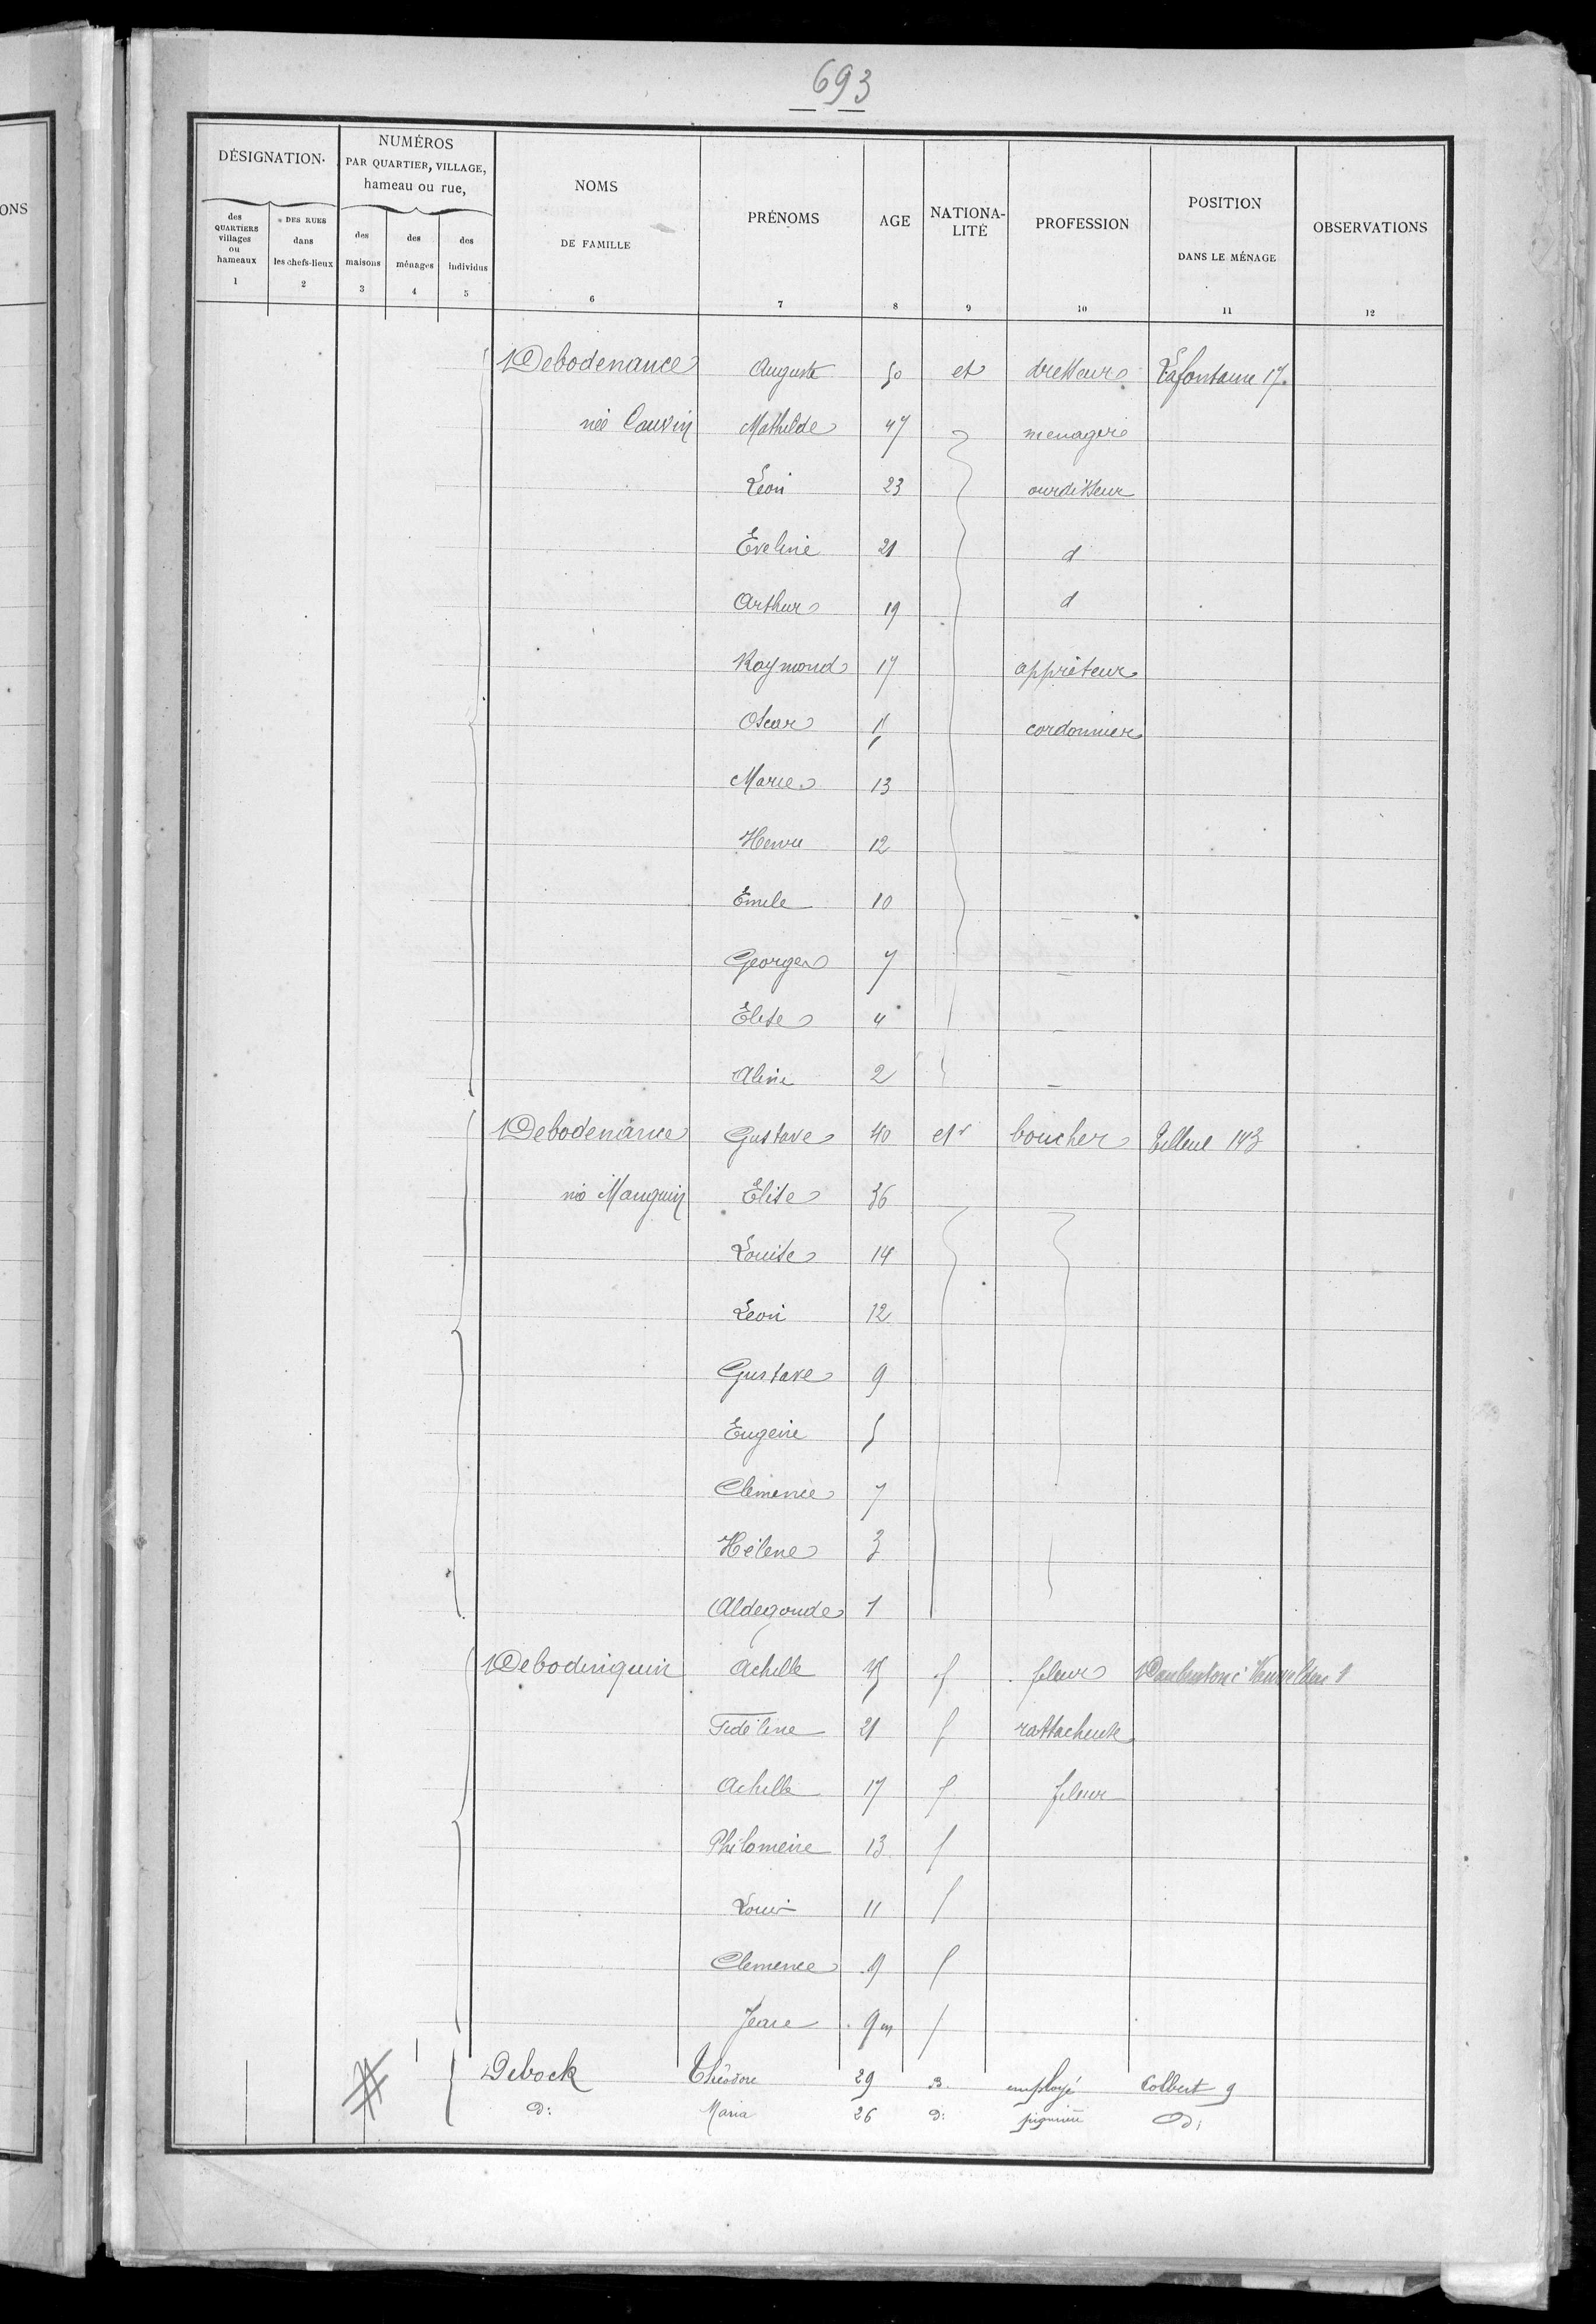 693
ONS
DÉSIGNATION
NUMÉROS PAR QUARTIER, VILLAGE, hameau ou rue,
NOMS DE FAMILLE
PRÉNOMS
AGE
NATIONALITÉ
PROFESSION
POSITION DANS LE MÉNAGE
OBSERVATIONS
des QUARTIERS villages ou hameaux
DES RUES dans les chefs-lieux
des maisons
des ménages
des individus
1 2 3 4 5 6 7 8 9 10 11 12
Debodenance Auguste 50 et dresseur Lafontaine 17
née Cauvin Mathilde 47 menagère
Léon 23 ourdisseur
Eveline 21 d
Arthur 19 d
Raymond 17 appréteur
Oscar cordonnier
Marie 13
Henri 12
Emile 10
Georges 7
Elise 4
Aline 2
Debodenance Gustave 40 etr boucher Tilleul 143
née Manguin Elise 36
Louise 14
Léon 12
Gustave 9
Eugenie 5
Clemence 7
Hélène 3
Aldegonde 1
Debodinguin Achille 45 f fileur Daubenton
Fidéline 21 f rattacheuse
Achille 17 f fileur
Philomène 13 f
Louis 11 f
Clemence f
Jeane 9 m f
Debock Théodore 29 B. employé Colbert 9
D: Maria 26 D: D: